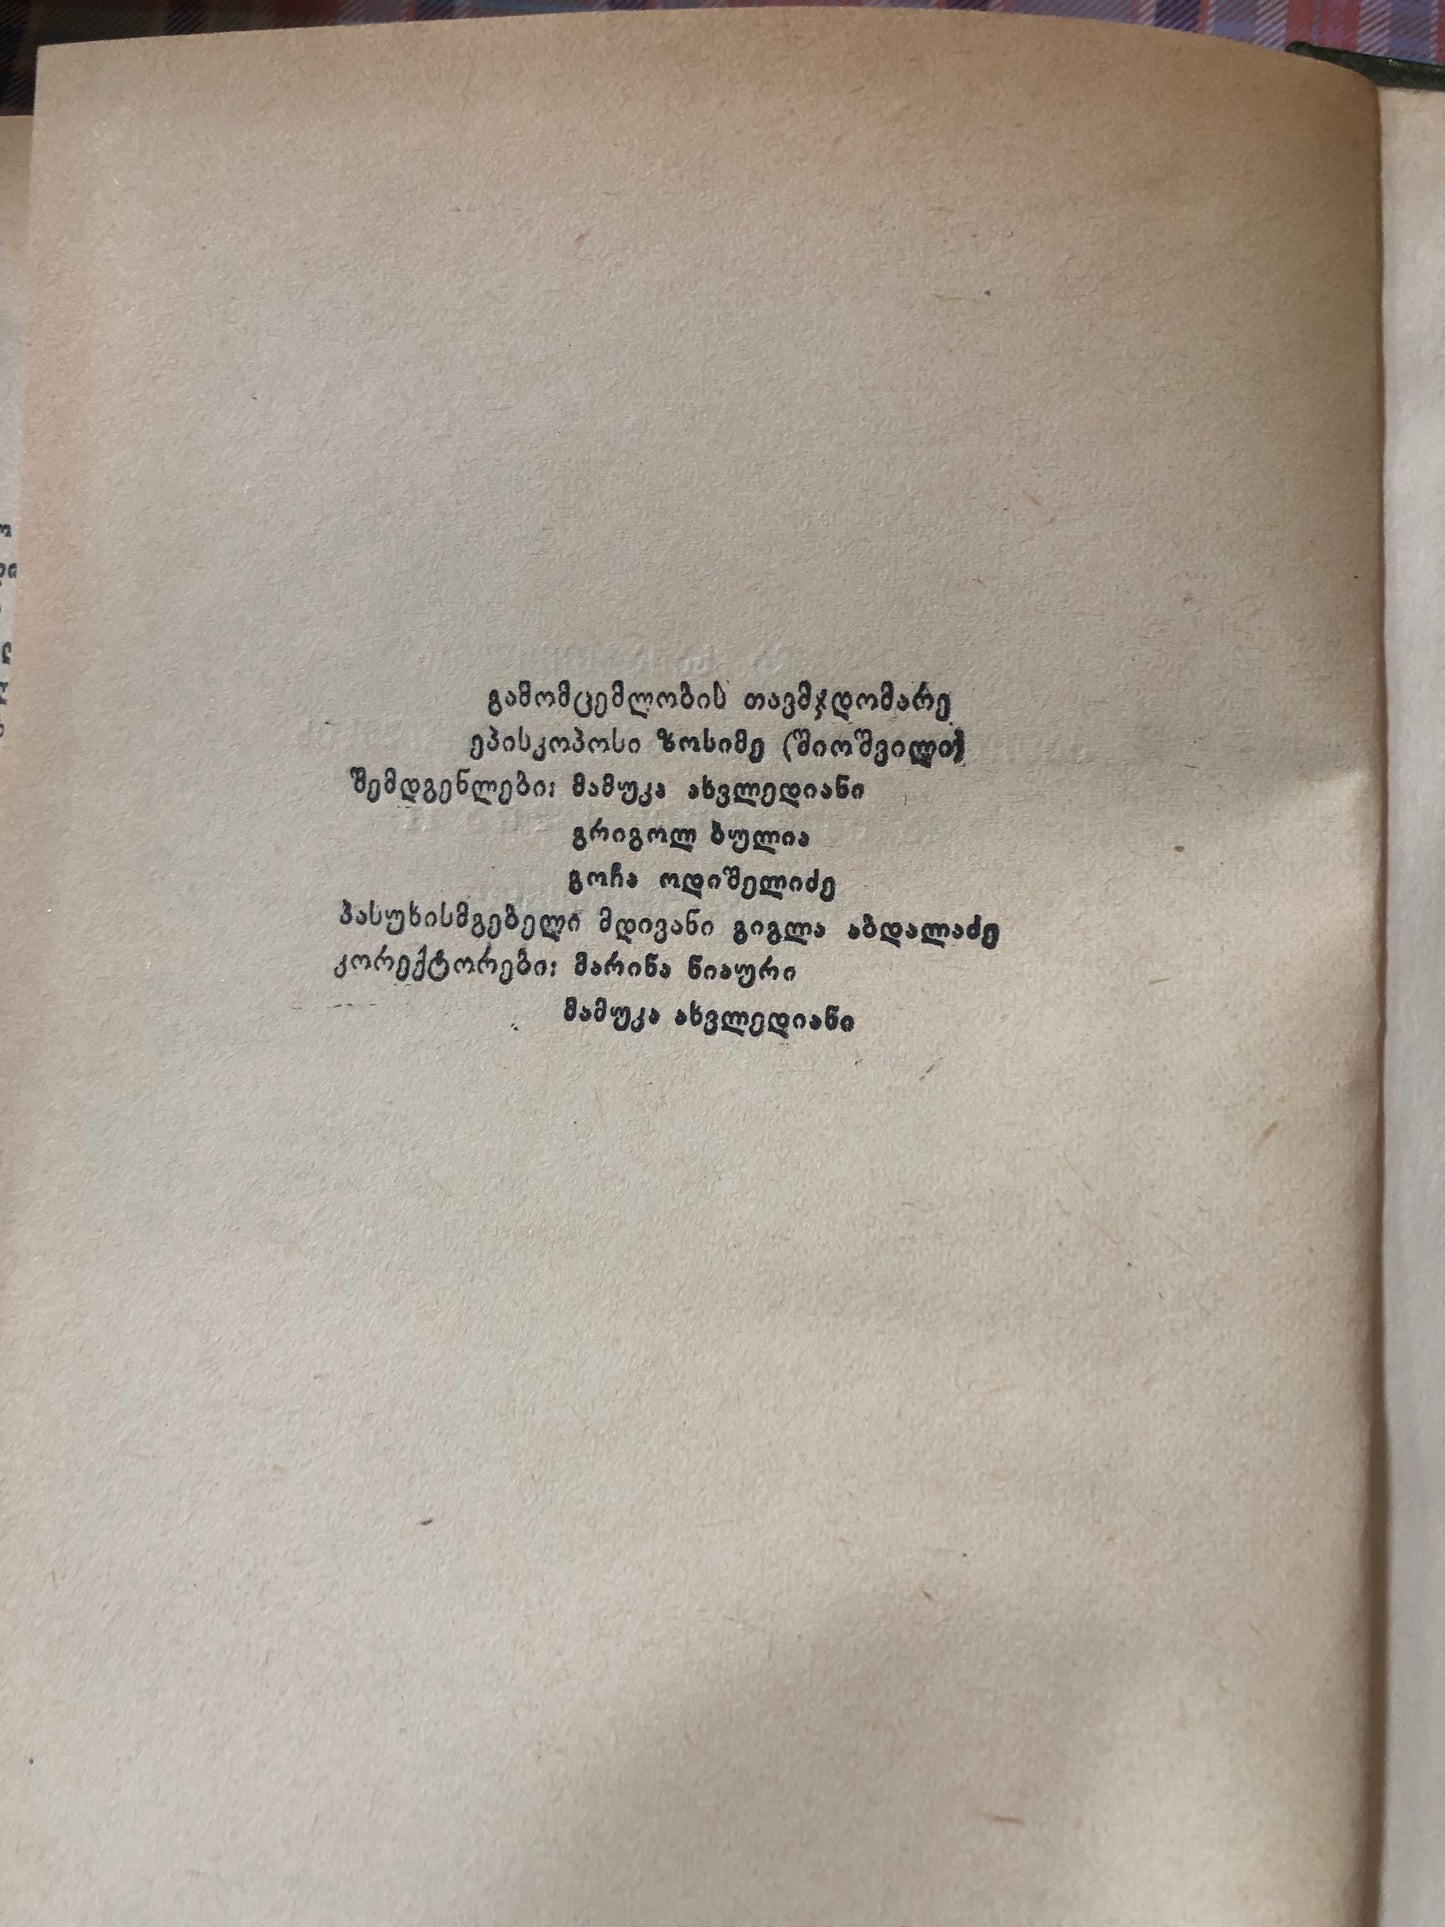 გამომცემლობის თავმჯდომარე
ეპისკოპოსი ზოსიმე (შიოშვილი)
შემდგენლები: მამუკა ახვლედიანი
გრიგოლ ბულია
გოჩა ოდიშელიძე
პასუხისმგებელი მდივანი გიგლა აბდალაძე
კორექტორები: მარინა ნიაური
მამუკა ახვლედიანი